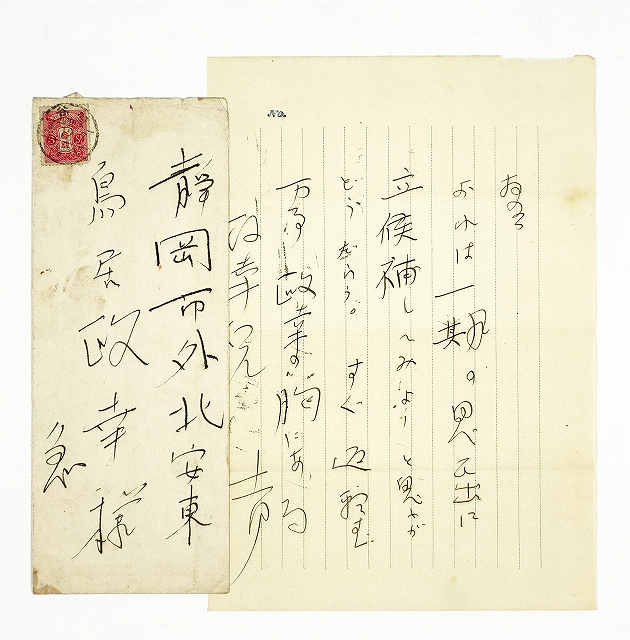 No.
おれは一期の思ひ出に
立候補してみようと思ふが
どうだらう。すぐ返
万事政幸の胸にある
政幸兄
静岡市外北安東
鳥居政幸様
急